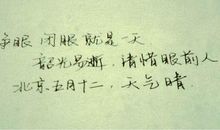 争眼 闭眼 就是一天
韶光易逝，请惜眼前人
北京五月十二，天气晴.